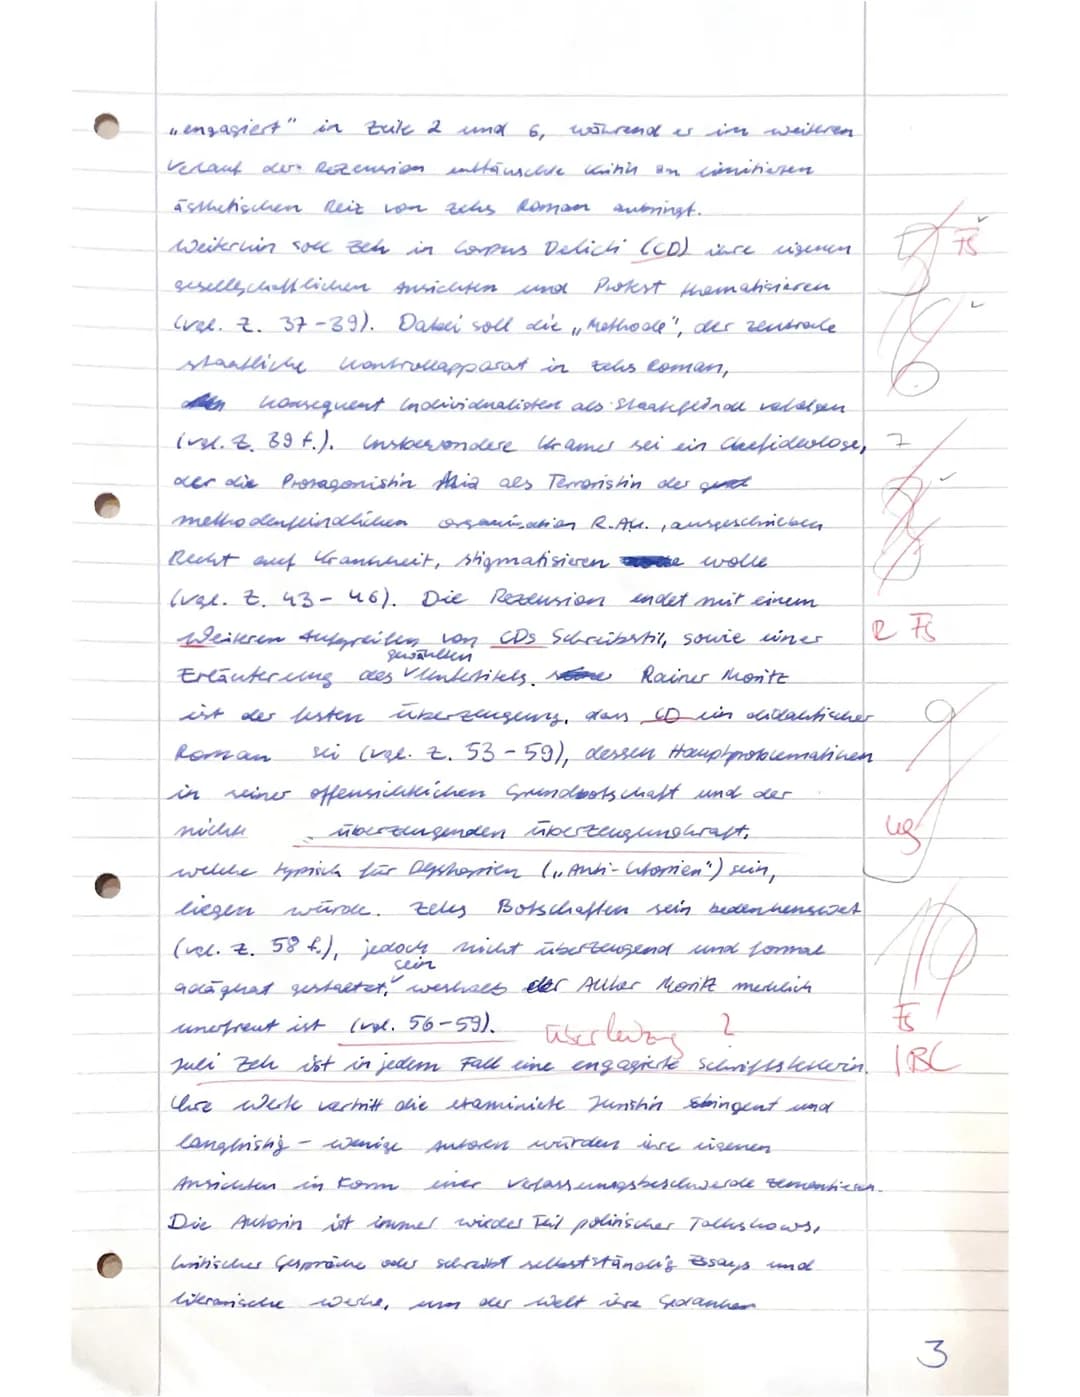 „engagiert" in Zeile 2 und 6, während er im weiteren
Verlauf der Rezension enttäuschte Kritik am limitierten
ästhetischen Reiz von Zehs Roman anbringt.
Weiterhin soll Zeh in Corpus Delicti (CD) ihre eigenen FS
gesellschaftlichen Ansichten und Protest thematisieren
(vgl. Z. 37-39). Dabei soll die „Methode", der zentrale
staatliche Kontrollapparat in Zehs Roman,
konsequent Individualisten als Staatsfeinde
(vgl. Z. 39 f.). Insbesondere Kramer sei ein Chefideologe, 7
der die Protagonistin Mia als Terroristin der
methodenfeindlichen Organisation R.A.K., ausgeschrieben
Recht auf Krankheit, stigmatisieren wolle
(vgl. Z. 43-46). Die Rezension endet mit einem
Weiteren Aufgreifen von CDs Schreibstil, sowie einer R FS
gewählten
Erläuterung des Untertitels. Rainer Moritz
ist der festen Überzeugung, dass CD ein didaktischer 9
Roman sei (vgl. Z. 53-59), dessen Hauptproblematiken
in seiner offensichtlichen Grundbotschaft und der
nicht überzeugenden Überzeugungskraft,
welche typisch für Dysthopien („Anti-Utopien") sein,
liegen würde. Zehs Botschaften sein bedenkenswert 10
(vgl. Z. 58 f.), jedoch nicht überzeugend und formal
sein
adäquat gestaltet, weshalb der Autor Moritz merklich
unerfreut ist (vgl. 56-59). Überleitung ? FS
Juli Zeh ist in jedem Fall eine engagierte Schriftstellerin. BC
Ihre Werte vertritt die examinierte Juristin stringent und
langfristig - wenige Autoren würden ihre eigenen
Ansichten in Form einer Verfassungsbeschwerde zementieren.
Die Autorin ist immer wieder Teil politischer Talkshows,
kritischer Gespräche oder schreibt selbstständig Essays und
literarische Werke, um der Welt ihre Gedanken
3